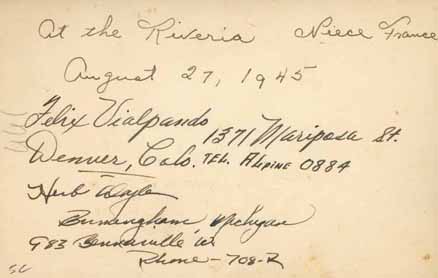 At the Riveria Niece France
August 27, 1945
Felix Vialpando
1371 Mariposa St.
Denver, Colo. TEL. Alpine 0884
Herb
Birmingham, Michigan
983
Phone - 708-R